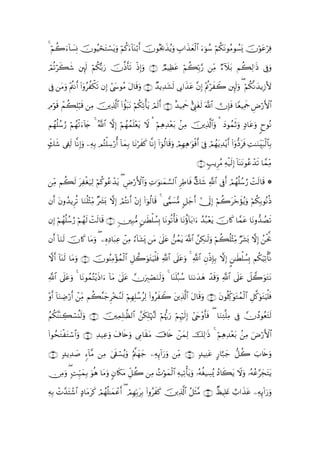 فِرْعَوْنَ يَسُومُونَكُمْ سُوٓءَ ٱلْعَذَابِ وَيُذَبِّحُونَ أَبْنَآءَكُمْ وَيَسْتَحْيُونَ نِسَآءَكُمْ ۚ
وَفِى ذَٰلِكُم بَلَآءٌ مِّن رَّبِّكُمْ عَظِيمٌ ۝٦ وَإِذْ تَأَذَّنَ رَبُّكُمْ لَئِن شَكَرْتُمْ
لَأَزِيدَنَّكُمْ ۖ وَلَئِن كَفَرْتُمْ إِنَّ عَذَابِى لَشَدِيدٌ ۝٧ وَقَالَ مُوسَىٰٓ إِن تَكْفُرُوٓا۟ أَنتُمْ وَمَن فِى
ٱلْأَرْضِ جَمِيعًا فَإِنَّ ٱللَّهَ لَغَنِىٌّ حَمِيدٌ ۝٨ أَلَمْ يَأْتِكُمْ نَبَؤُا۟ ٱلَّذِينَ مِن قَبْلِكُمْ قَوْمِ
نُوحٍ وَعَادٍ وَثَمُودَ ۛ وَٱلَّذِينَ مِنۢ بَعْدِهِمْ ۛ لَا يَعْلَمُهُمْ إِلَّا ٱللَّهُ ۚ جَآءَتْهُمْ رُسُلُهُم
بِٱلْبَيِّنَٰتِ فَرَدُّوٓا۟ أَيْدِيَهُمْ فِىٓ أَفْوَٰهِهِمْ وَقَالُوٓا۟ إِنَّا كَفَرْنَا بِمَآ أُرْسِلْتُم بِهِۦ وَإِنَّا لَفِى شَكٍّ
مِّمَّا تَدْعُونَنَآ إِلَيْهِ مُرِيبٍ ۝٩
۞ قَالَتْ رُسُلُهُمْ أَفِى ٱللَّهِ شَكٌّ فَاطِرِ ٱلسَّمَٰوَٰتِ وَٱلْأَرْضِ ۖ يَدْعُوكُمْ لِيَغْفِرَ لَكُم مِّن
ذُنُوبِكُمْ وَيُؤَخِّرَكُمْ إِلَىٰٓ أَجَلٍ مُّسَمًّى ۚ قَالُوٓا۟ إِنْ أَنتُمْ إِلَّا بَشَرٌ مِّثْلُنَا تُرِيدُونَ أَن
تَصُدُّونَا عَمَّا كَانَ يَعْبُدُ ءَابَآؤُنَا فَأْتُونَا بِسُلْطَٰنٍ مُّبِينٍ ۝١٠ قَالَتْ لَهُمْ رُسُلُهُمْ إِن
نَّحْنُ إِلَّا بَشَرٌ مِّثْلُكُمْ وَلَٰكِنَّ ٱللَّهَ يَمُنُّ عَلَىٰ مَن يَشَآءُ مِنْ عِبَادِهِۦ ۖ وَمَا كَانَ لَنَآ أَن
نَّأْتِيَكُم بِسُلْطَٰنٍ إِلَّا بِإِذْنِ ٱللَّهِ ۚ وَعَلَى ٱللَّهِ فَلْيَتَوَكَّلِ ٱلْمُؤْمِنُونَ ۝١١ وَمَا لَنَآ أَلَّا
نَتَوَكَّلَ عَلَى ٱللَّهِ وَقَدْ هَدَىٰنَا سُبُلَنَا ۚ وَلَنَصْبِرَنَّ عَلَىٰ مَآ ءَاذَيْتُمُونَا ۚ وَعَلَى ٱللَّهِ
فَلْيَتَوَكَّلِ ٱلْمُتَوَكِّلُونَ ۝١٢ وَقَالَ ٱلَّذِينَ كَفَرُوا۟ لِرُسُلِهِمْ لَنُخْرِجَنَّكُم مِّنْ أَرْضِنَآ أَوْ
لَتَعُودُنَّ فِى مِلَّتِنَا ۖ فَأَوْحَىٰٓ إِلَيْهِمْ رَبُّهُمْ لَنُهْلِكَنَّ ٱلظَّٰلِمِينَ ۝١٣ وَلَنُسْكِنَنَّكُمُ
ٱلْأَرْضَ مِنۢ بَعْدِهِمْ ۚ ذَٰلِكَ لِمَنْ خَافَ مَقَامِى وَخَافَ وَعِيدِ ۝١٤ وَٱسْتَفْتَحُوا۟
وَخَابَ كُلُّ جَبَّارٍ عَنِيدٍ ۝١٥ مِّن وَرَآئِهِۦ جَهَنَّمُ وَيُسْقَىٰ مِن مَّآءٍ صَدِيدٍ ۝١٦
يَتَجَرَّعُهُۥ وَلَا يَكَادُ يُسِيغُهُۥ وَيَأْتِيهِ ٱلْمَوْتُ مِن كُلِّ مَكَانٍ وَمَا هُوَ بِمَيِّتٍ ۖ وَمِن
وَرَآئِهِۦ عَذَابٌ غَلِيظٌ ۝١٧ مَّثَلُ ٱلَّذِينَ كَفَرُوا۟ بِرَبِّهِمْ ۖ أَعْمَٰلُهُمْ كَرَمَادٍ ٱشْتَدَّتْ بِهِ